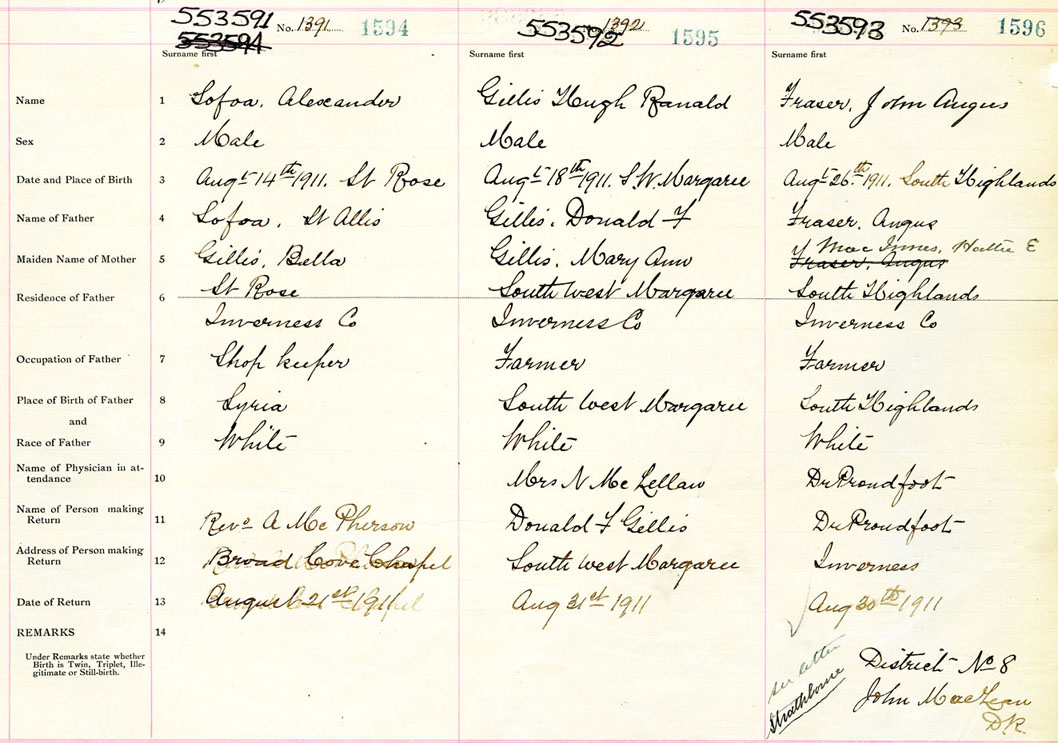 553591 No. 1391 1594 553592 1392 1595 553593 No. 1393 1596
553594
Surname first Surname first Surname first
Name 1 Sofoa, Alexander Gillis Hugh Ranald Fraser, John Angus
Sex 2 Male Male Male
Date and Place of Birth 3 Augt 14th 1911. St Rose Augt 18th 1911. S.W. Margaree Augt 26th 1911. South Highlands
Name of Father 4 Sofoa, St Allis Gillis, Donald F Fraser, Angus
Mac Innes, Hattie E
Maiden Name of Mother 5 Gillis, Bella Gillis, Mary Ann Fraser, Angus
Residence of Father 6 St Rose South West Margaree South Highlands
Inverness Co Inverness Co Inverness Co
Occupation of Father 7 Shop keeper Farmer Farmer
Place of Birth of Father 8 Syria South West Margaree South Highlands
and
Race of Father 9 White White White
Name of Physician in at-
tendance 10 Mrs N Mc Lellan Dr Proudfoot
Name of Person making
Return 11 Revd A Mc Pherson Donald F Gillis Dr Proudfoot
Address of Person making
Return 12 Broad Cove Chapel South West Margaree Inverness
Date of Return 13 August 21st 1911 Aug 31st 1911 Aug 30th 1911
REMARKS 14
Under Remarks state whether
Birth is Twin, Triplet, Ille-
gitimate or Still-birth.
see letter
Strathlorne
District No 8
John MacLean
D.R.